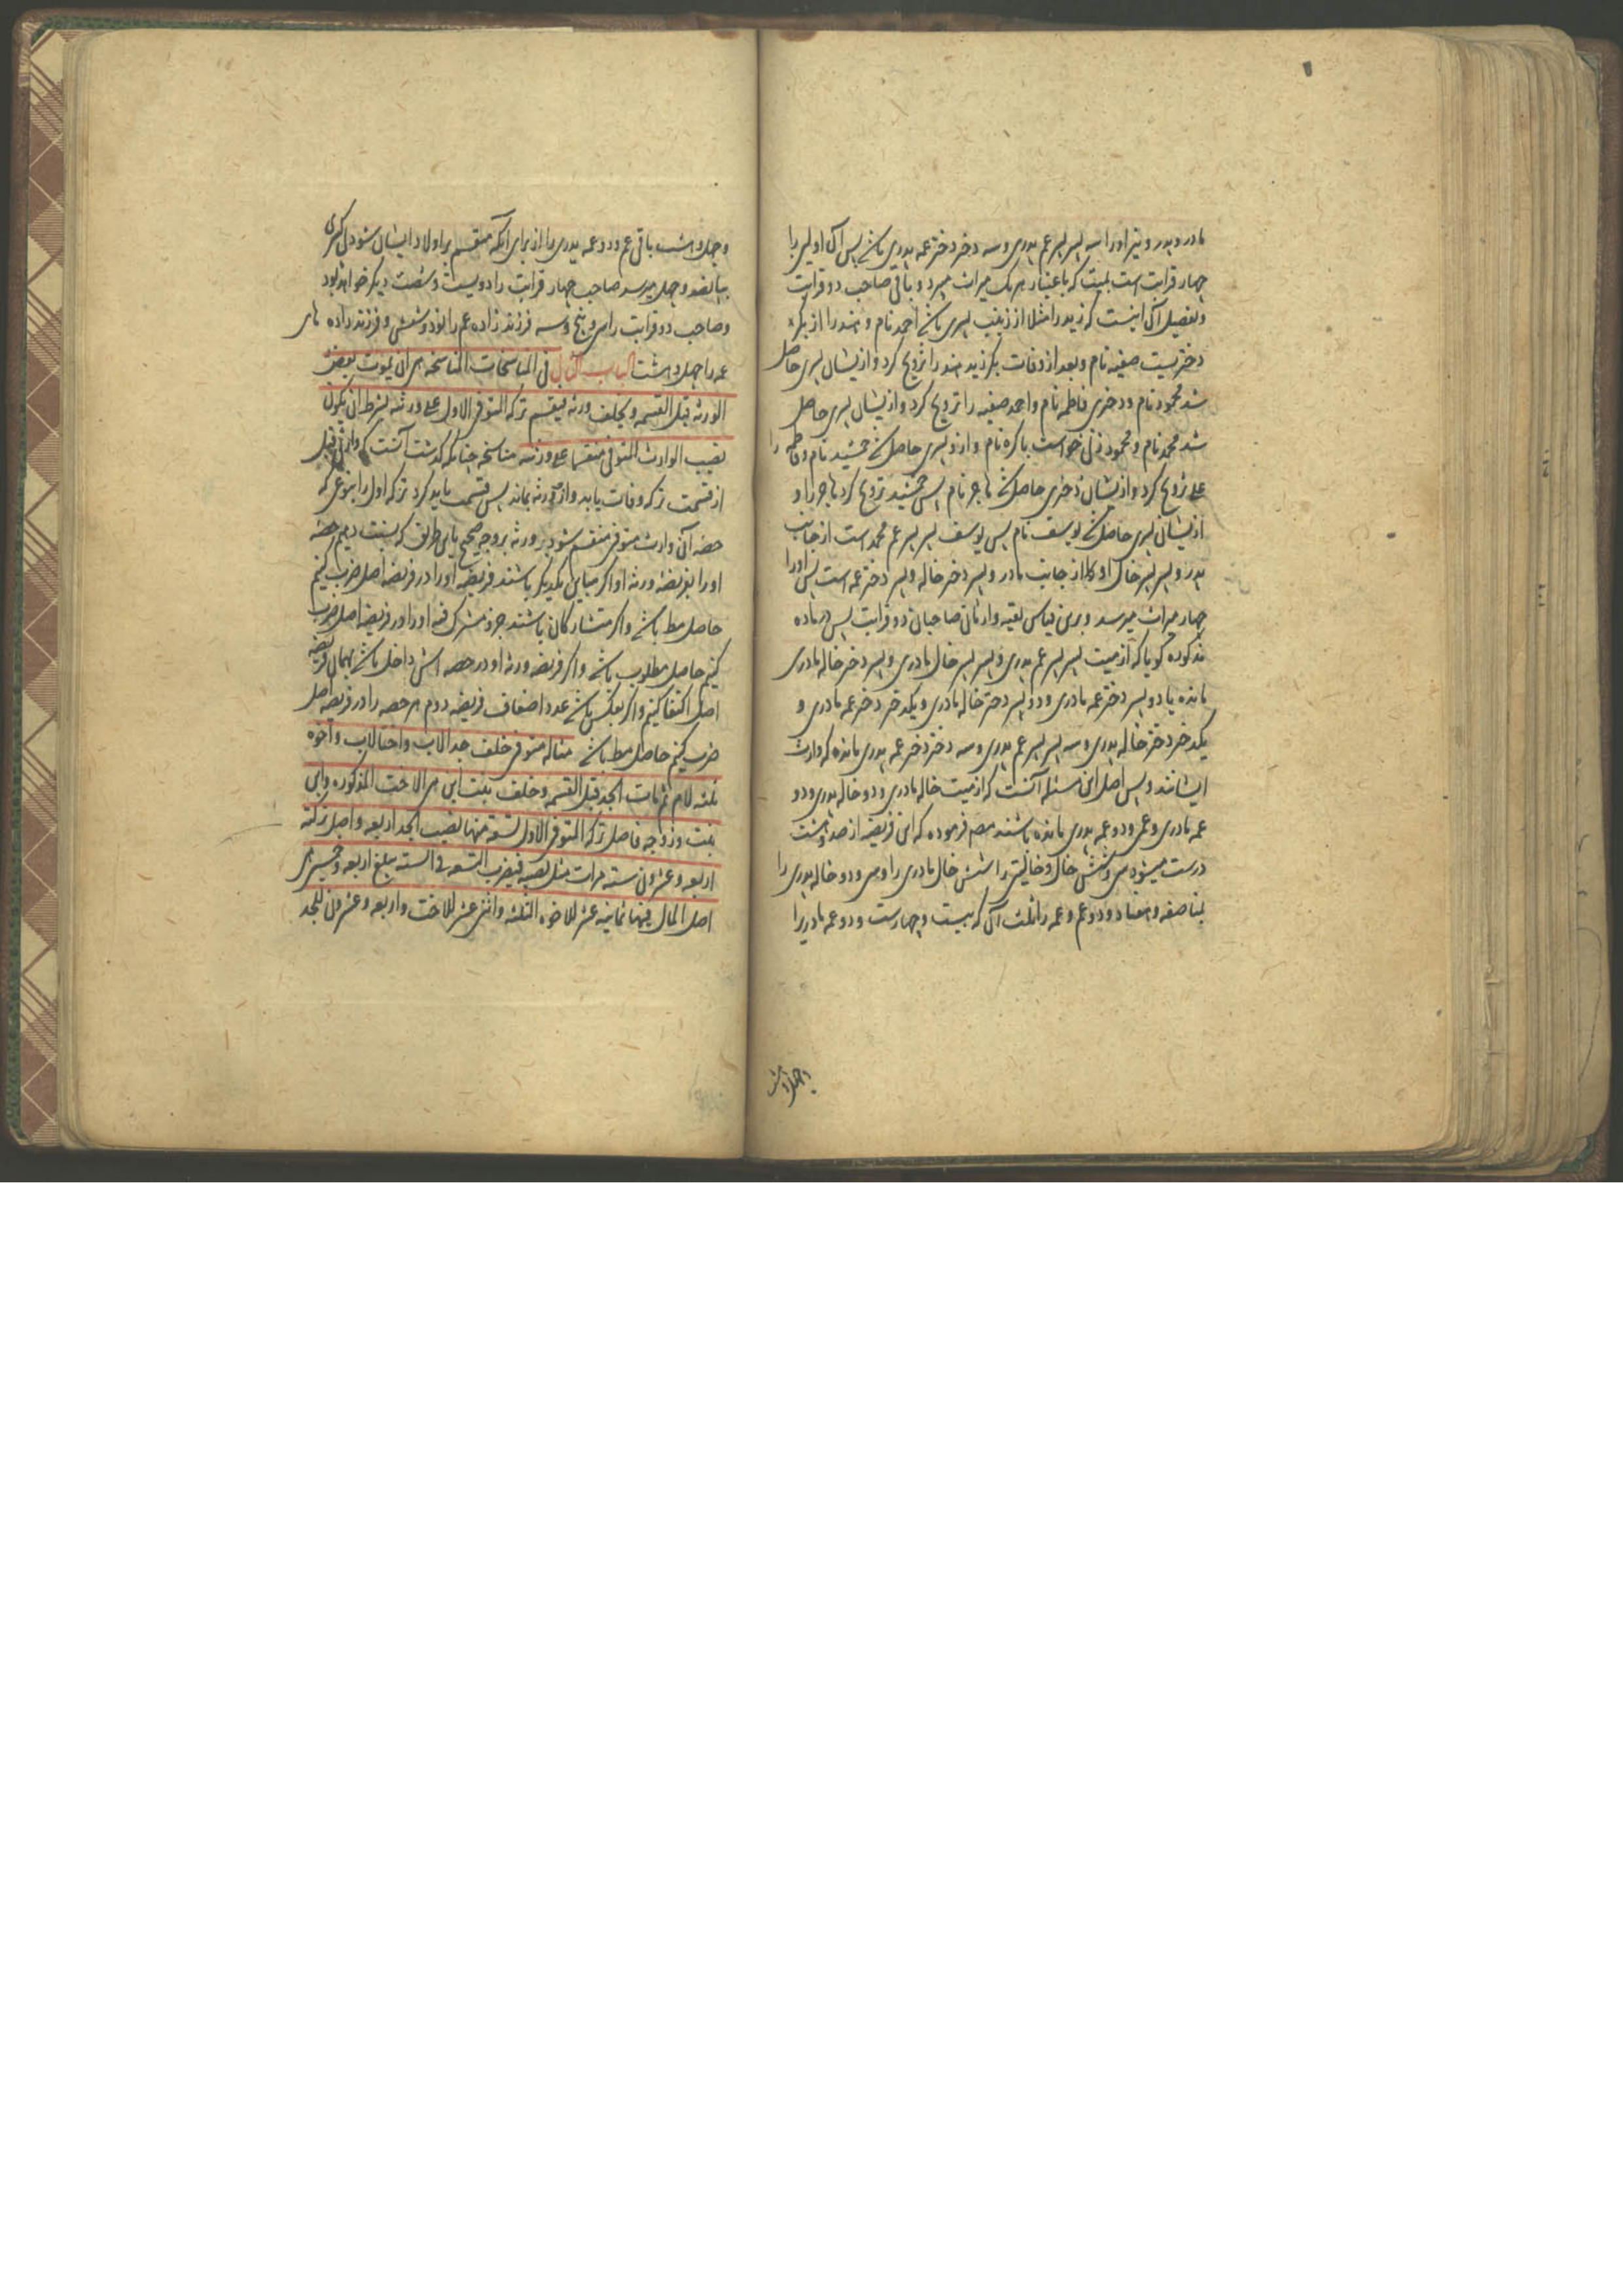 مادر و پدر و نیز او را سه پسر پسر عم پدری و سه دختر دختر عمه پدری باشد پس آن اولی را
چهار قرابت است بمیت که باعتبار هر یک میراث میبرد و باقی صاحب دو قرابت
و تفصیل آن اینست که زید را مثلا از زینب پسری باشد احمد نام و هند را از بکر
دختریست صفیه نام و بعد از وفات بکر زید هند را تزویج کرد و از ایشان پسری حاصل
شد محمود نام و دختری فاطمه نام و احمد صفیه را تزویج کرد و از ایشان پسری حاصل
شد محمد نام و محمود زنی خواست باکره نام و ازو پسری حاصل شد جمشید نام و فاطمه را
علی تزویج کرد و از ایشان دختری حاصل شد هاجر نام پس جمشید تزویج کرد هاجر را و
از ایشان پسری حاصل شد یوسف نام پس یوسف پسر پسر عم محمد است از جانب
پدر و پسر پسر خال او از جانب مادر و پسر دختر خاله و پسر دختر عمه است پس او را
چهار میراث میرسد و برین قیاس بقیه وارثان صاحبان دو قرابت پس در ماده
مذکوره گویا که از میت پسر پسر عم پدری و پسر پسر خال مادری و پسر دختر خاله مادری
مانده با دو پسر دختر عمه مادری و دو پسر دختر خاله مادری و یکدختر دختر عمه مادری و
یکدختر دختر خاله پدری و سه پسر پسر عم پدری و سه دختر دختر عمه پدری مانده که وارث
ایشانند و پس اصل این مسئله آنست که از میت خاله مادری و دو خاله پدری و دو
عمه مادری و عم و دو عمه پدری مانده باشند مصم فرموده که این فریضه از صد و هشت
درست میشود سی و شش خال و خالتین را شش خال مادری را و سی و دو خاله پدری را
بمناصفه و هفتاد و دو عم و عمه را ثلث آن که بیست و چهارست و دو عمه مادریرا
و چهل و هشت
و چهل و هشت باقی عم و دو عمه پدری را از برای آنکه منقسم بر اولاد ایشان شود بی کسری
بپانصد و چهل میرسد صاحب چهار قرابت را دویست و شصت دیگر خواهد بود
و صاحب دو قرابت را سی و پنج و سه فرزند زاده عم را نود و شش و فرزند زاده های
عمه را چهل و هشت الباب الثانی فی المناسخات المناسخه هی ان یموت بعض
الورثه قبل القسمه و یخلف ورثه فیقسم ترکه المتوفی الاول علی ورثته بشرط ان یکون
نصیب الوارث المتوفی منقسما علی ورثته مناسخه چنانکه گذشت آنست که وارثی قبل
از قسمت ترکه وفات یابد و ازو ورثه بماند پس قسمت باید کرد ترکه اول را بنوعی که
حصه آن وارث متوفی منقسم شود بر ورثه بر وجه صحیح باین طریق که نسبت دهیم حصه
او را بفریضه ورثه او اگر مباین یکدیگر باشند فریضه او را در فریضه اصل ضرب کنیم
حاصل مط باشد و اگر متشارکان باشند جزء مشترک فیه او را در فریضه اصل ضرب
کنیم حاصل مطلوب باشد و اگر فریضه ورثه او در حصه اش داخل باشد بهمان فریضه
اصل اکتفا کنیم و اگر بعکس باشد عدد اضعاف فریضه دوم هر حصه را در فریضه اصل
ضرب کنیم حاصل مط باشد مثاله متوفی خلف جدا لاب و اختا لاب و اخوه
ثلثه لام ثم مات الجد قبل القسمه و خلف بنت ابن هی الاخت المذکوره و ابن
بنت و زوجه فاصل ترکه المتوفی الاول تسعه منها نصیب الجد اربعه و اصل ترکته
اربعه و عشرون سته مرات مثل نصیبه فیضرب التسعه فی السته یبلغ اربعه و خمسین هی
اصل المال فمنها ثمانیه عشر للاخوه الثلثه و اثنی عشر للاخت و اربعه و عشرون للجد